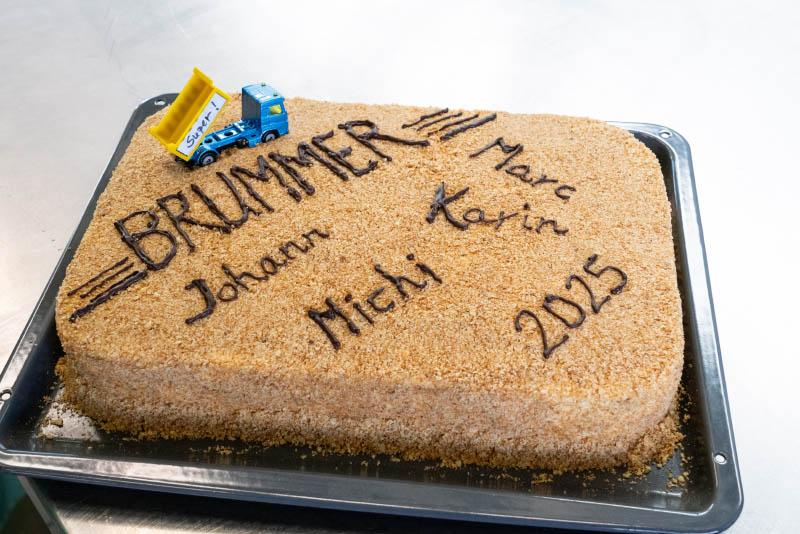 Super!
BRUMMER
Marc
Karin
Johann
Michi
2025